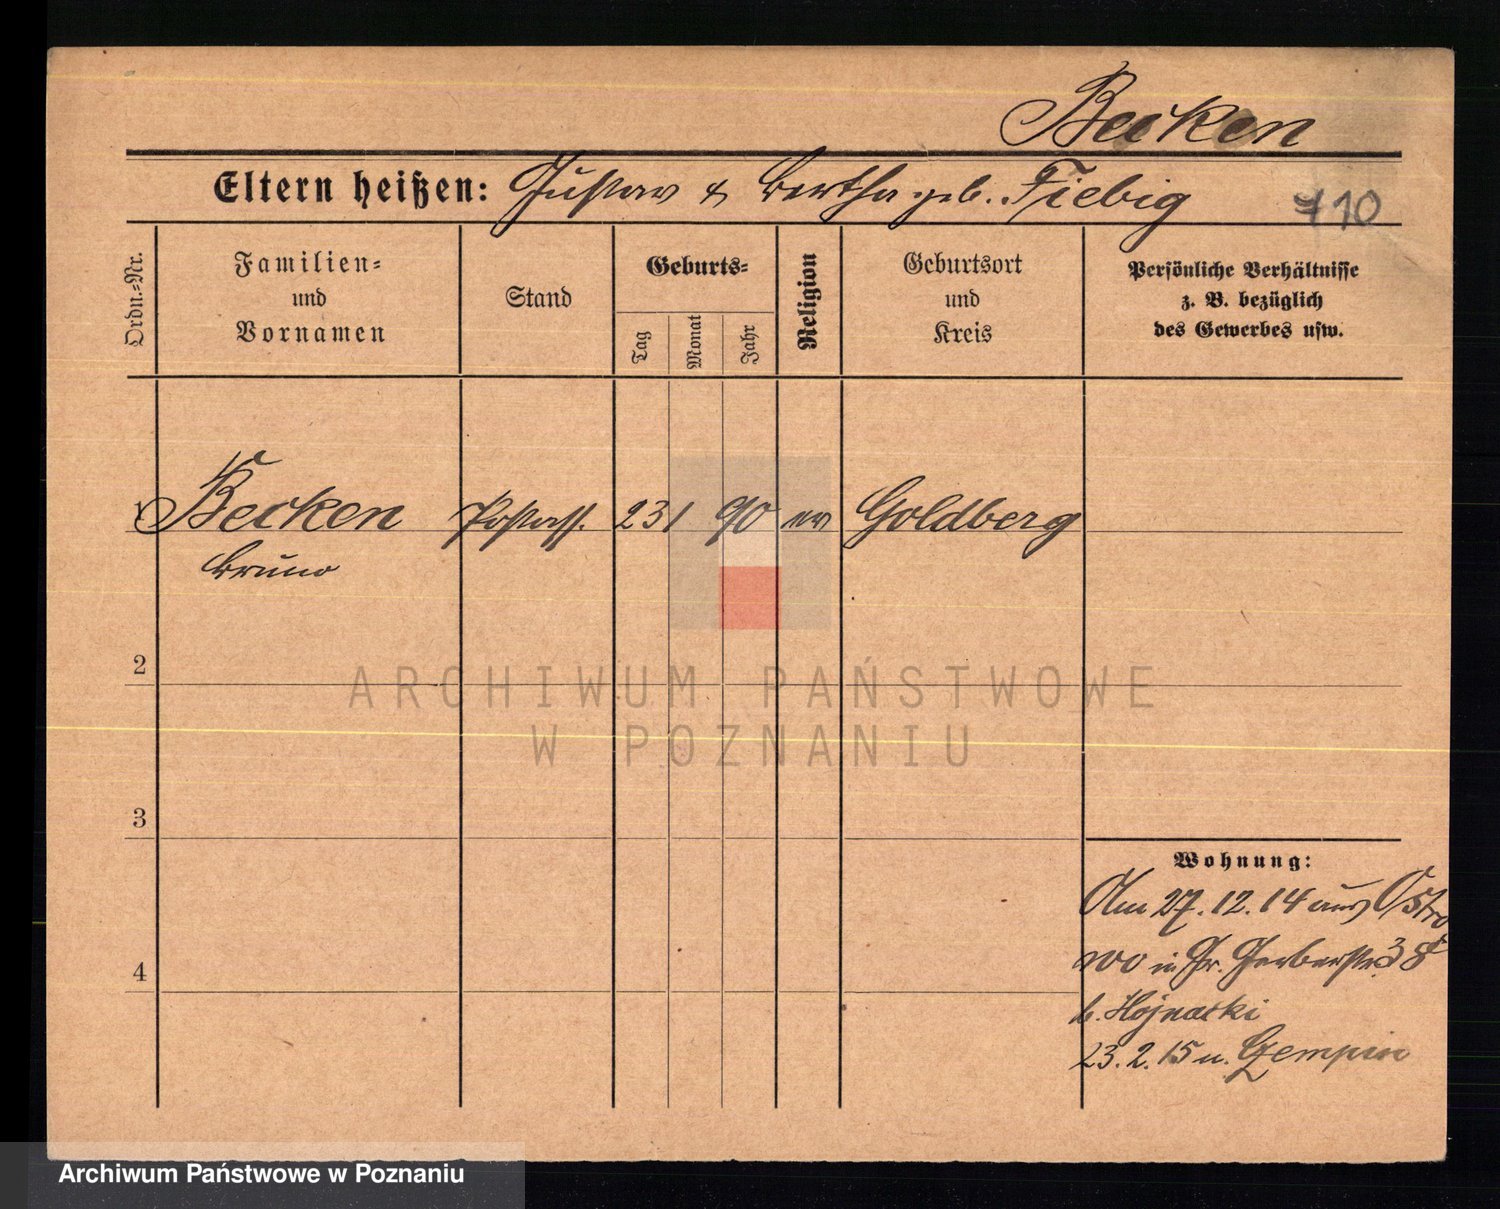 Becken
Eltern heißen: Gustav & Bertha geb. Fiebig
710
Ordn.-Nr.
Familien-
und
Vornamen
Stand
Geburts-
Tag
Monat
Jahr
Religion
Geburtsort
und
Kreis
Persönliche Verhältnisse
z. B. bezüglich
des Gewerbes usw.
1 Becken Postass. 23 1 90 ev Goldberg
Bruno
2
3
4
Wohnung:
Am 27.12.14 aus Ostro
wo in Gr. Gerberstr. 38
b. Hojnacki
23.2.15 n. Czempin
ARCHIWUM PAŃSTWOWE
W POZNANIU
Archiwum Państwowe w Poznaniu